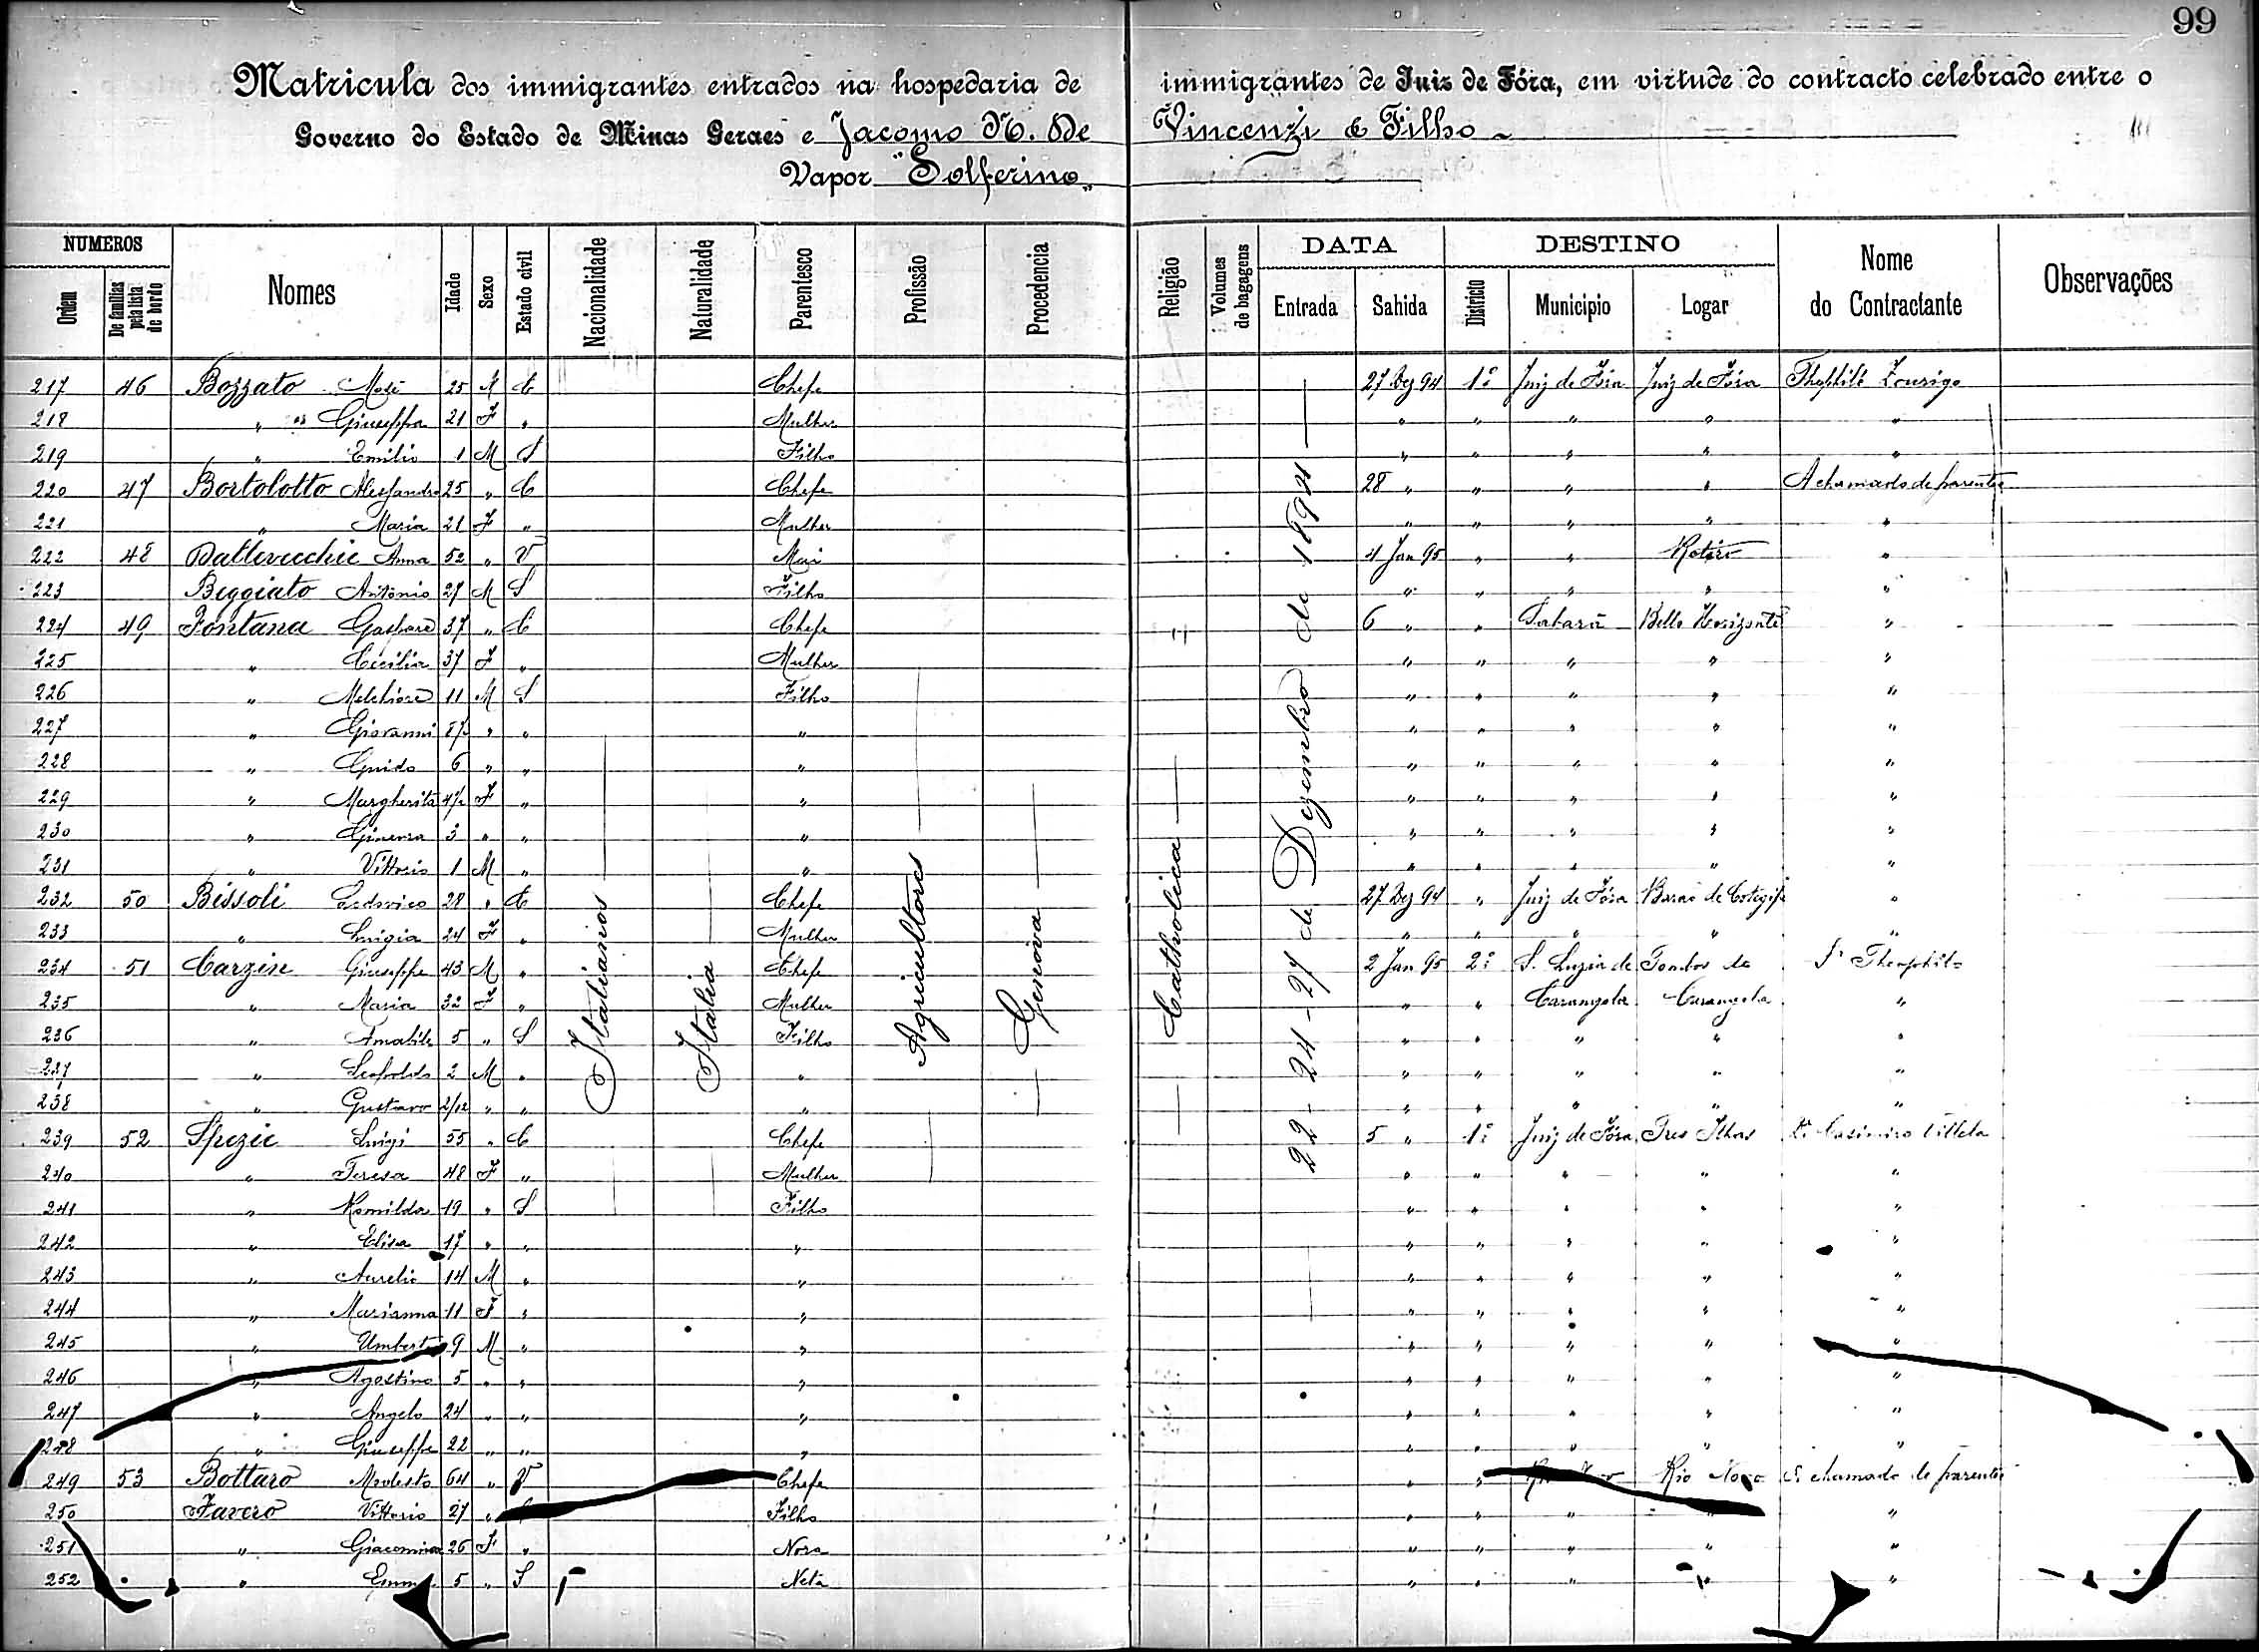 99
Matricula dos immigrantes entrados na hospedaria de immigrantes de Juiz de Fóra, em virtude do contracto celebrado entre o
Governo do Estado de Minas Geraes e Jacomo N. De Vincenzi & Filho
Vapor "Solferino"
NUMEROS DATA DESTINO
Ordem De familias pela lista de bordo Nomes Idade Sexo Estado civil Nacionalidade Naturalidade Parentesco Profissão Procedencia Religião Volumes de bagagens Entrada Sahida Districto Municipio Logar Nome do Contractante Observações
Italianos Italia Agricultores Genova Catholica 22 - 24 - 27 de Dezembro de 1894
217 46 Bozzato Mosè 25 M C Chefe 27 Dez 94 1º Juiz de Fóra Juiz de Fóra
218 " Giuseppa 21 F " Mulher " " " " "
219 " Emilio 1 M S Filho " " " " "
220 47 Bortolotto Alessandro 25 " C Chefe 28 " " " " A chamado de parentes
221 " Maria 21 F " Mulher " " " " "
222 48 Dattevecchie Anna 52 " V Mai 4 Jan 95 " " "
223 Beggiato Antonio 27 M S Filho " " " " "
224 49 Fontana Gaspare 37 " C Chefe 6 " " Sabará Bello Horizonte "
225 " Cecilia 37 F " Mulher " " " " "
226 " Melchiore 11 M S Filho " " " " "
227 " Giovanni " " " " " " " "
228 " Guido 6 " " " " " " " "
229 " Margherita 4½ F " " " " " " "
230 " Ginevra 3 " " " " " " " "
231 " Vittorio 1 M " " " " " " "
232 50 Bissoli Lodovico 28 " C Chefe 27 Dez 94 " Juiz de Fóra Barão de Cotegipe "
233 " Luigia 24 F " Mulher " " " " "
234 51 Carzin Giuseppe 43 M " Chefe 2 Jan 95 2º S. Luzia de Tombos de
235 " Maria 32 F " Mulher " " Carangola Carangola "
236 " Amabile 5 " S Filho " " " " "
237 " Leopoldo 2 M " " " " " " "
238 " Gustavo 2/12 " " " " " " " "
239 52 Spezie Luigi 55 " C Chefe 5 " 1º Juiz de Fóra Tres Ilhas Casimiro Villela
240 " Teresa 48 F " Mulher " " " " "
241 " Romilda 19 " S Filho " " " " "
242 " Elisa 17 " " " " " " " "
243 " Aurelio 14 M " " " " " " "
244 " Marianna 11 F " " " " " " "
245 " Umberto 9 M " " " " " " "
246 " Agostino 5 " " " " " " " "
247 " Angelo 24 " " " " " " " "
248 " Giuseppe 22 " " " " " " " "
249 53 Bottaro Modesto 64 " V Chefe " " Rio Novo A chamado de parentes
250 Favero Vittorio 27 " Filho " " " " "
251 " Giacomina 26 F " Nora " " " " "
252 " Emma 5 " S Neta " " " " "